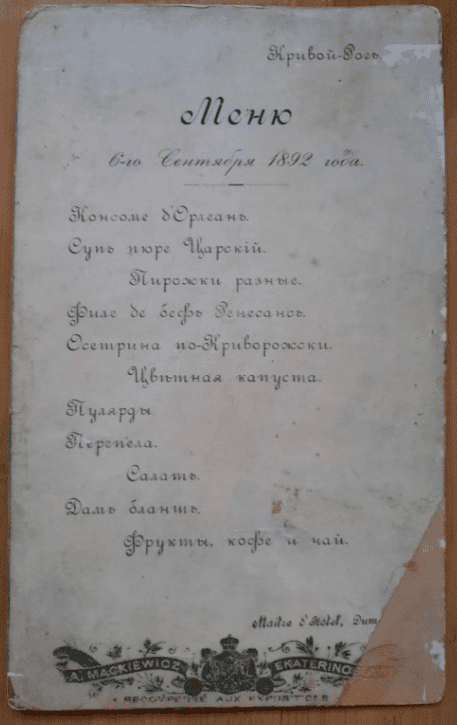 Кривой-Рогъ
Меню
6-го Сентября 1892 года.
Консоме д'Орлеанъ.
Супъ пюре Царскій.
Пирожки разные.
Филе де бефъ Ренесансъ.
Осетрина по-Криворожски.
Цвѣтная капуста.
Пулярды
Перепела.
Салатъ.
Дамъ бланшъ.
Фрукты, кофе и чай.
Maître d'Hôtel,
A. MACKIEWICZ
AUX